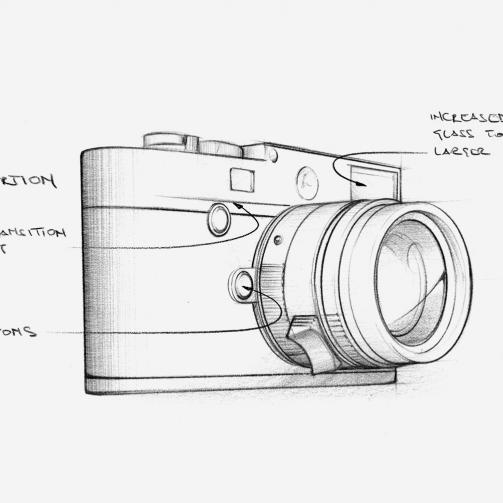 INCREASED
GLASS TO
LARGER
RTION
ANSITION
T
ONS